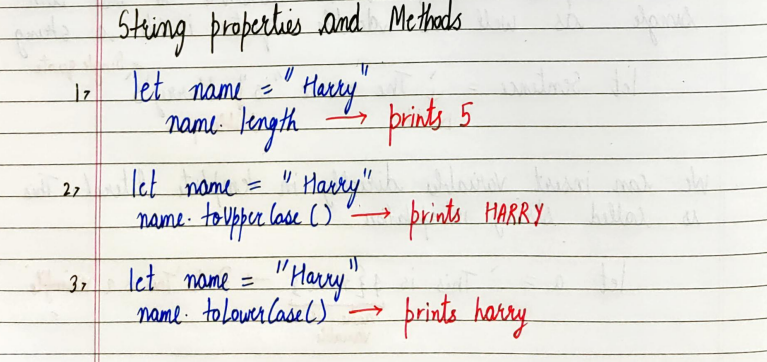 String properties and Methods
1> let name = "Harry"
name. length → prints 5
2> let name = "Harry"
name. toUpperCase () → prints HARRY
3> let name = "Harry"
name. toLowerCase() → prints harry